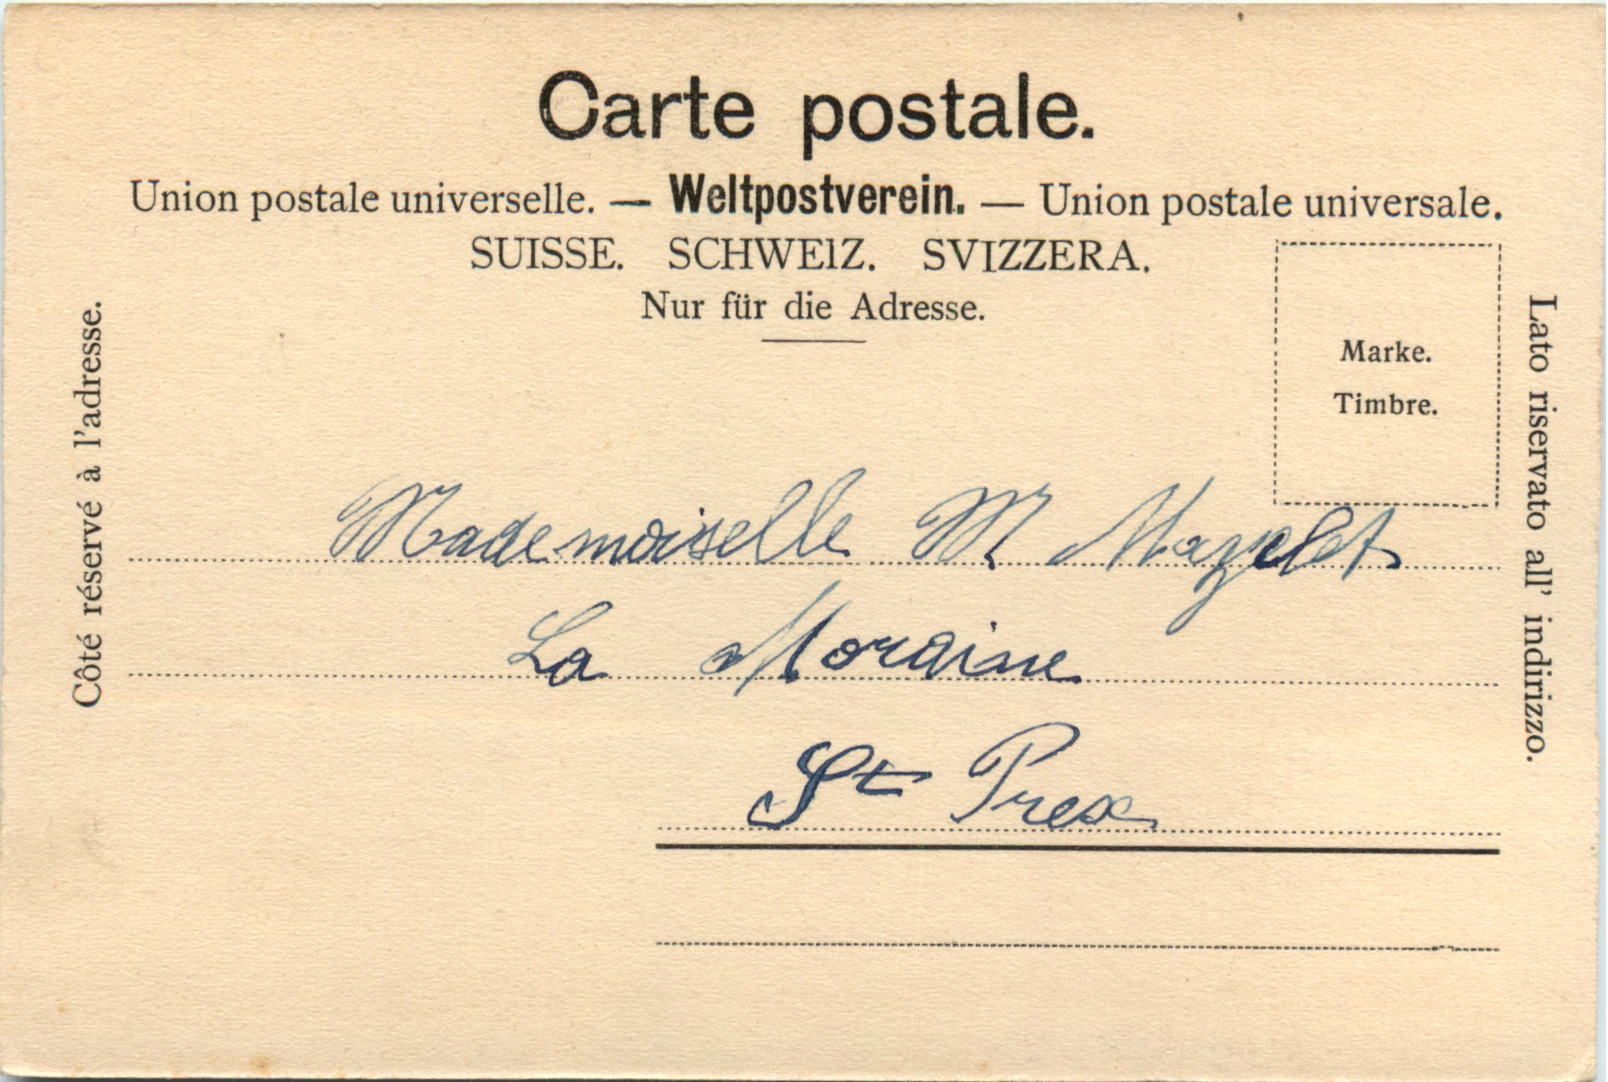 Carte postale.
Union postale universelle. — Weltpostverein. — Union postale universale.
SUISSE. SCHWEIZ. SVIZZERA.
Nur für die Adresse.
Marke.
Timbre.
Côté réservé à l'adresse.
Lato riservato all' indirizzo.
Mademoiselle M Mazelet
La Moraine
St Prex